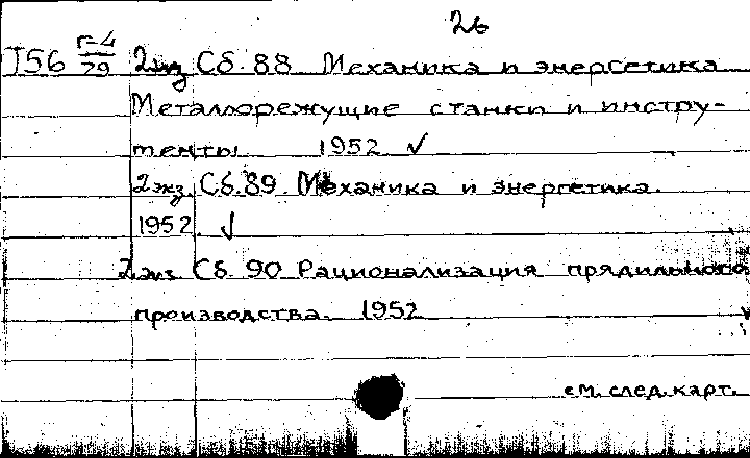 26
J56 г-4/29 2экз Сб. 88 Механика и энергетика
Металлорежущие станки и инстру-
менты 1952 ✓
2экз Сб. 89. Механика и энергетика.
1952. ✓
2экз Сб. 90 Рационализация прядильного
производства. 1952
см. след. карт.